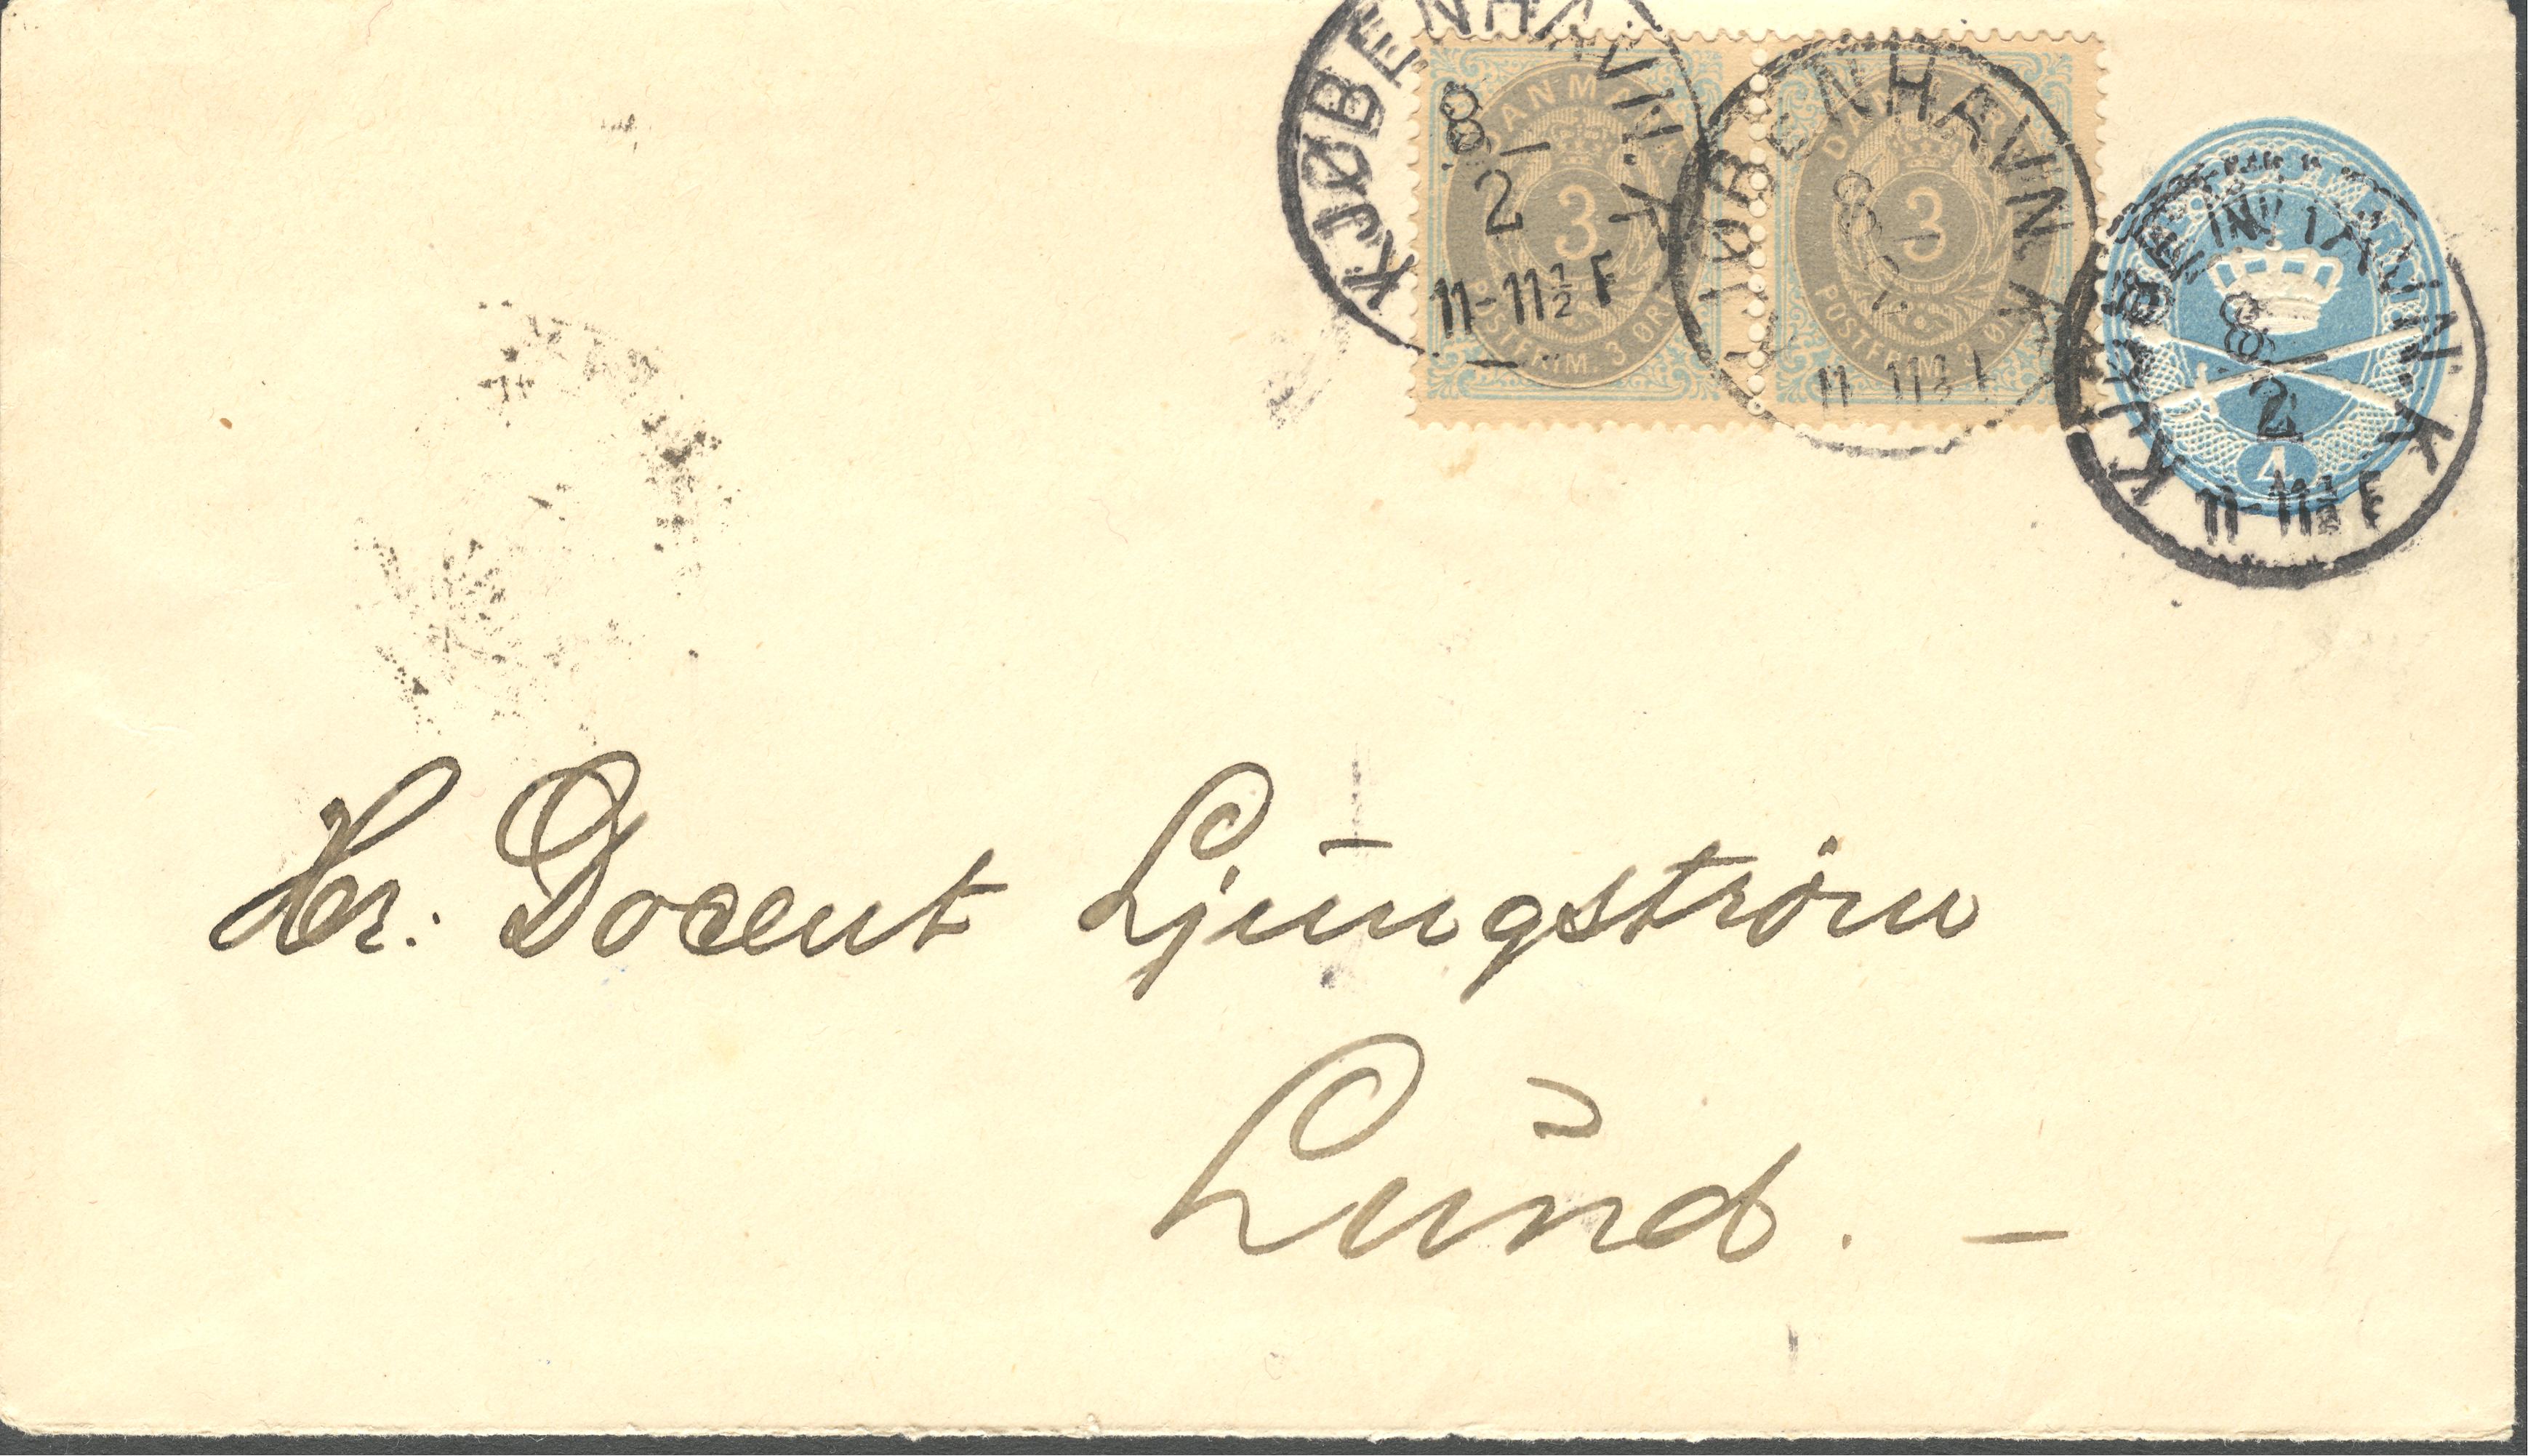 KJØBENHAVN. K.
8/2
11-11½ F
DANMARK
3
POSTFRIM. 3 ØRE
KJØBENHAVN K
8/2
11-11½ F
DANMARK
3
POSTFRIM. 3 ØRE
KJØBENHAVN. K
8/2
11-11½ F
4
Hr. Docent Ljungström
Lund. —